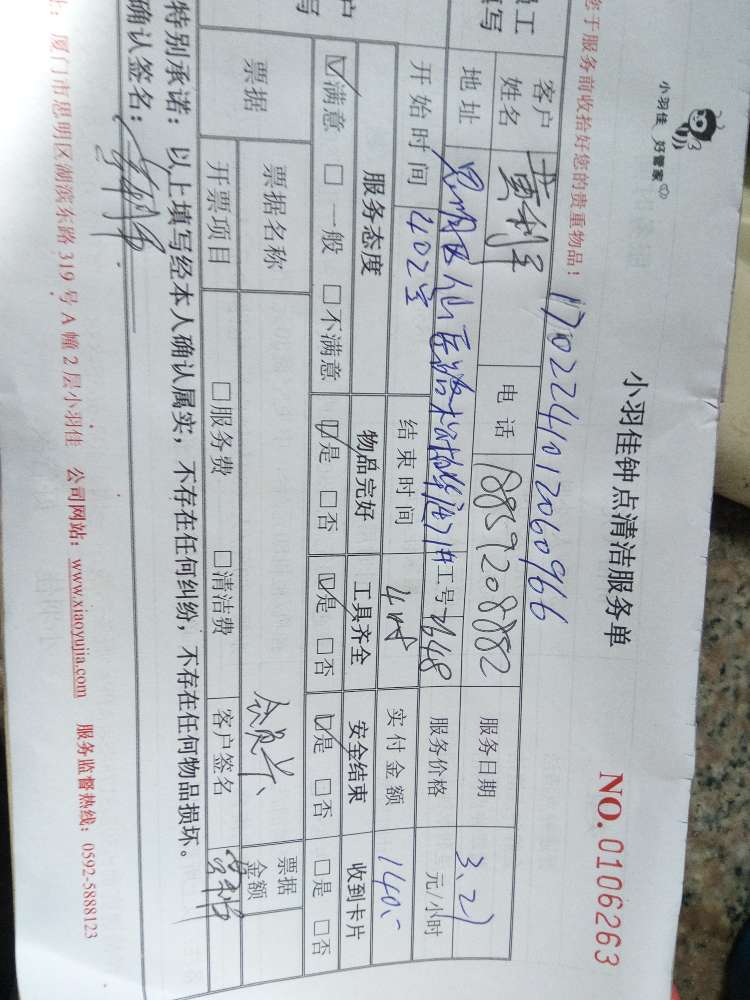 小羽佳 好管家
小羽佳钟点清洁服务单
NO. 0106263
您于服务前收拾好您的贵重物品！
1702241012060966
员工
填写
客户
姓名
电话
服务日期
3.21
地址
思明区仙岳路
工号
2648
服务价格
元/小时
开始时间
402室
结束时间
4时
实付金额
140.-
户
写
服务态度
物品完好
工具齐全
安全结束
收到卡片
☑满意 □一般 □不满意
☑是 □否
☑是 □否
☑是 □否
□是 □否
票据
票据名称
会员卡
票据
金额
开票项目
□服务费 □清洁费
客户签名
特别承诺：以上填写经本人确认属实，不存在任何纠纷，不存在任何物品损坏。
确认签名：
址：厦门市思明区湖滨东路 319 号 A 幢 2 层小羽佳 公司网站：www.xiaoyujia.com 服务监督热线：0592-5888123